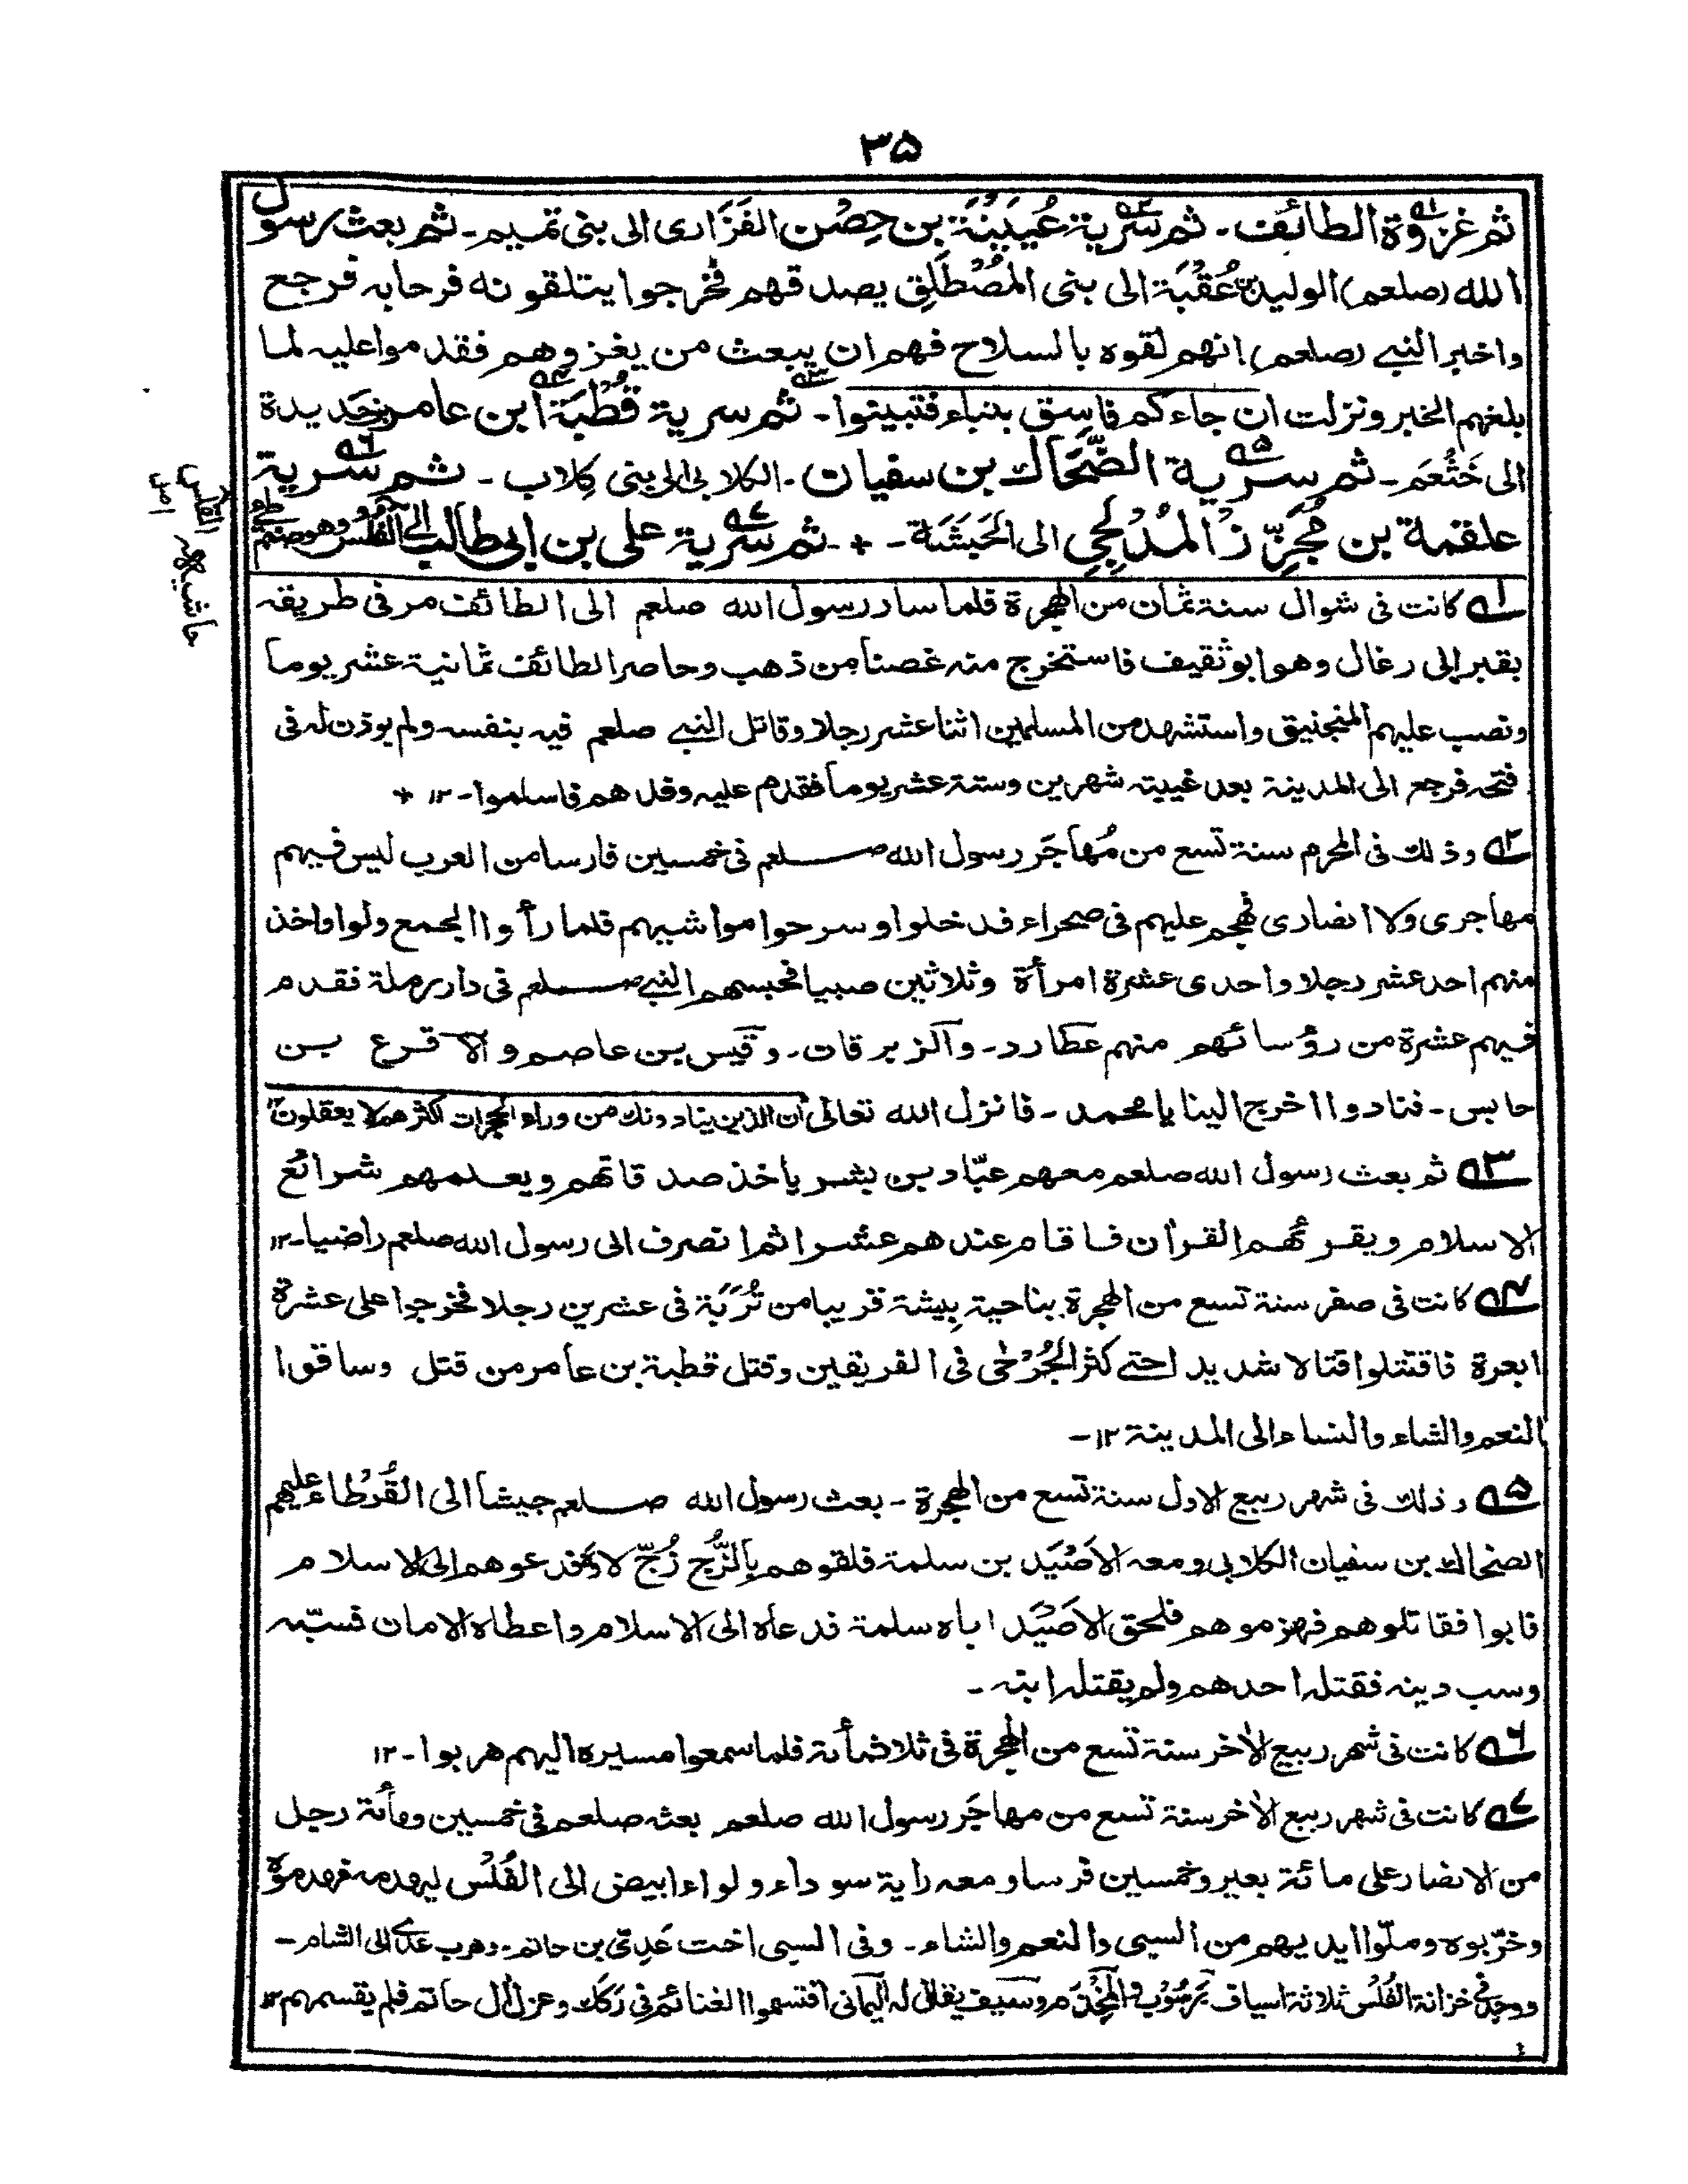 ۳۵
ثم غزوة الطائف ـ ثم سرية عُيَيْنَة بن حِصْن الفَزَارى الى بنى تميم ـ ثم بعث رسول
الله (صلعم) الوليد بن عُقْبَة الى بنى المُصْطَلَق يصدقهم فخرجوا يتلقونه فرحابه فرجع
واخبر النبے (صلعم) انهم لقوه بالسلاح فهم ان يبعث من يغزوهم فقدموا عليه لما
بلغهم الخبر ونزلت ان جاءكم فاسق بنباء فتبينوا ـ ثم سرية قُطْبَة ابن عامر بن حَدِيدة
الى خَثْعَم ـ ثم سرية الضَّحَاك بن سفيان ـ الكلابى الى بنى كِلاب ـ ثم سرية
علقمة بن مُجَزِّز المُدْلِجِي الى الحَبَشَة ـ + ـ ثم سرية على بن ابى طالب الى الفُلْس وهو صنم طے
الفلس اصل
حاشيه
۱ كانت فى شوال سنة ثمان من الهجرة فلما سار رسول الله صلعم الى الطائف مر فى طريقه
بقبر ابى رغال وهو ابو ثقيف فاستخرج منه غصنا من ذهب وحاصر الطائف ثمانية عشر يوما
ونصب عليهم المنجنيق واستشهد من المسلمين اثنا عشر رجلا وقاتل النبے صلعم فيه بنفسه ولم يوذن له فى
فتحه فرجع الى المدينة بعد غيبته شهرين وستة عشر يوما فقدم عليه وفدهم فاسلموا ـ ۱۲ +
۲ وذلك فى المحرم سنة تسع من مُهاجَر رسول الله صلعم فى خمسين فارسا من العرب ليس فيهم
مهاجرى ولا انصارى فهجم عليهم فى صحراء قد خلوا وسرحوا مواشيهم فلما رأوا الجمع ولوا واخذ
منهم احد عشر رجلا واحدى عشرة امرأة وثلاثين صبيا فحبسهم النبے صلعم فى دار رملة فقدم
فيهم عشرة من رؤسائهم منهم عطارد ـ والزبرقان ـ وقيس بن عاصم والاقرع بن
حابس ـ فنادوا اخرج الينا يا محمد ـ فانزل الله تعالى ان الذين ينادونك من وراء الحجرات اكثرهم لا يعقلون ۱۲
۳ ثم بعث رسول الله صلعم معهم عبّاد بن بشر يأخذ صدقاتهم ويعلمهم شرائع
الاسلام ويقرئهم القرأن فاقام عندهم عشرا ثم انصرف الى رسول الله صلعم راضيا ـ ۱۲
۴ كانت فى صفر سنة تسع من الهجرة بناحية بِيشة قريبا من تُرَبَة فى عشرين رجلا فخرجوا على عشرة
ابعرة فاقتتلوا قتالا شديدا حتے كثر الجُرْحٰى فى الفريقين وقتل قطبة بن عامر من قتل وساقوا
النعم والشاء والنساء الى المدينة ۱۲ ـ
۵ وذلك فى شهر ربيع الاول سنة تسع من الهجرة ـ بعث رسول الله صلعم جيشا الى القُرْطاء عليهم
الضحاك بن سفيان الكلابى ومعه الاَصْيَد بن سلمة فلقوهم بالزُّج زُجّ لاوة فدعوهم الى الاسلام
فابوا فقاتلوهم فهزموهم فلحق الاَصْيَد اباه سلمة فدعاه الى الاسلام واعطاه الامان فسبّه
وسب دينه فقتله احدهم ولم يقتله ابنه ـ
۶ كانت فى شهر ربيع الاٰخر سنة تسع من الهجرة فى ثلاثمأئة فلما سمعوا مسيره اليهم هربوا ـ ۱۲
۷ كانت فى شهر ربيع الاٰخر سنة تسع من مهاجَر رسول الله صلعم بعثه صلعم فى خمسين ومأئة رجل
من الانصار على مائة بعير وخمسين فرسا ومعه راية سوداء ولواء ابيض الى الفُلْس ليهدمه فهدموه
وخرّبوه وملّوا ايديهم من السبى والنعم والشاء ـ وفى السبى اخت عَدِىّ بن حاتم ـ وهرب عدے الى الشام ـ
ووجد فى خزانة الفُلْس ثلاثة اسياف رَسُوب والمِخْذَم وسيف يقال له اليمانى اقتسموا الغنائم فى رَكَك وعزل اٰل حاتم فلم يقسمهم ۱۲